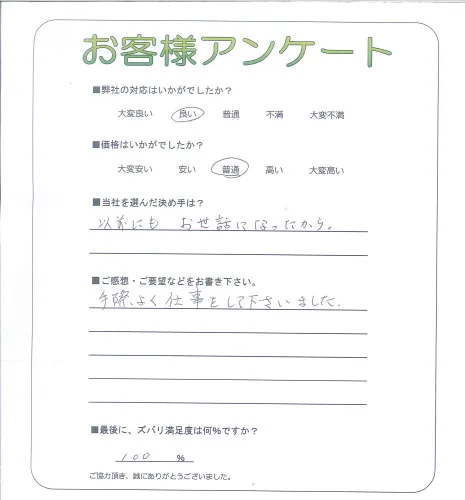 お客様アンケート
■弊社の対応はいかがでしたか？
大変良い 良い 普通 不満 大変不満
■価格はいかがでしたか？
大変安い 安い 普通 高い 大変高い
■当社を選んだ決め手は？
以前にも お世話になったから。
■ご感想・ご要望などをお書き下さい。
手際よく仕事をして下さいました.
■最後に、ズバリ満足度は何％ですか？
100 ％
ご協力頂き、誠にありがとうございました。